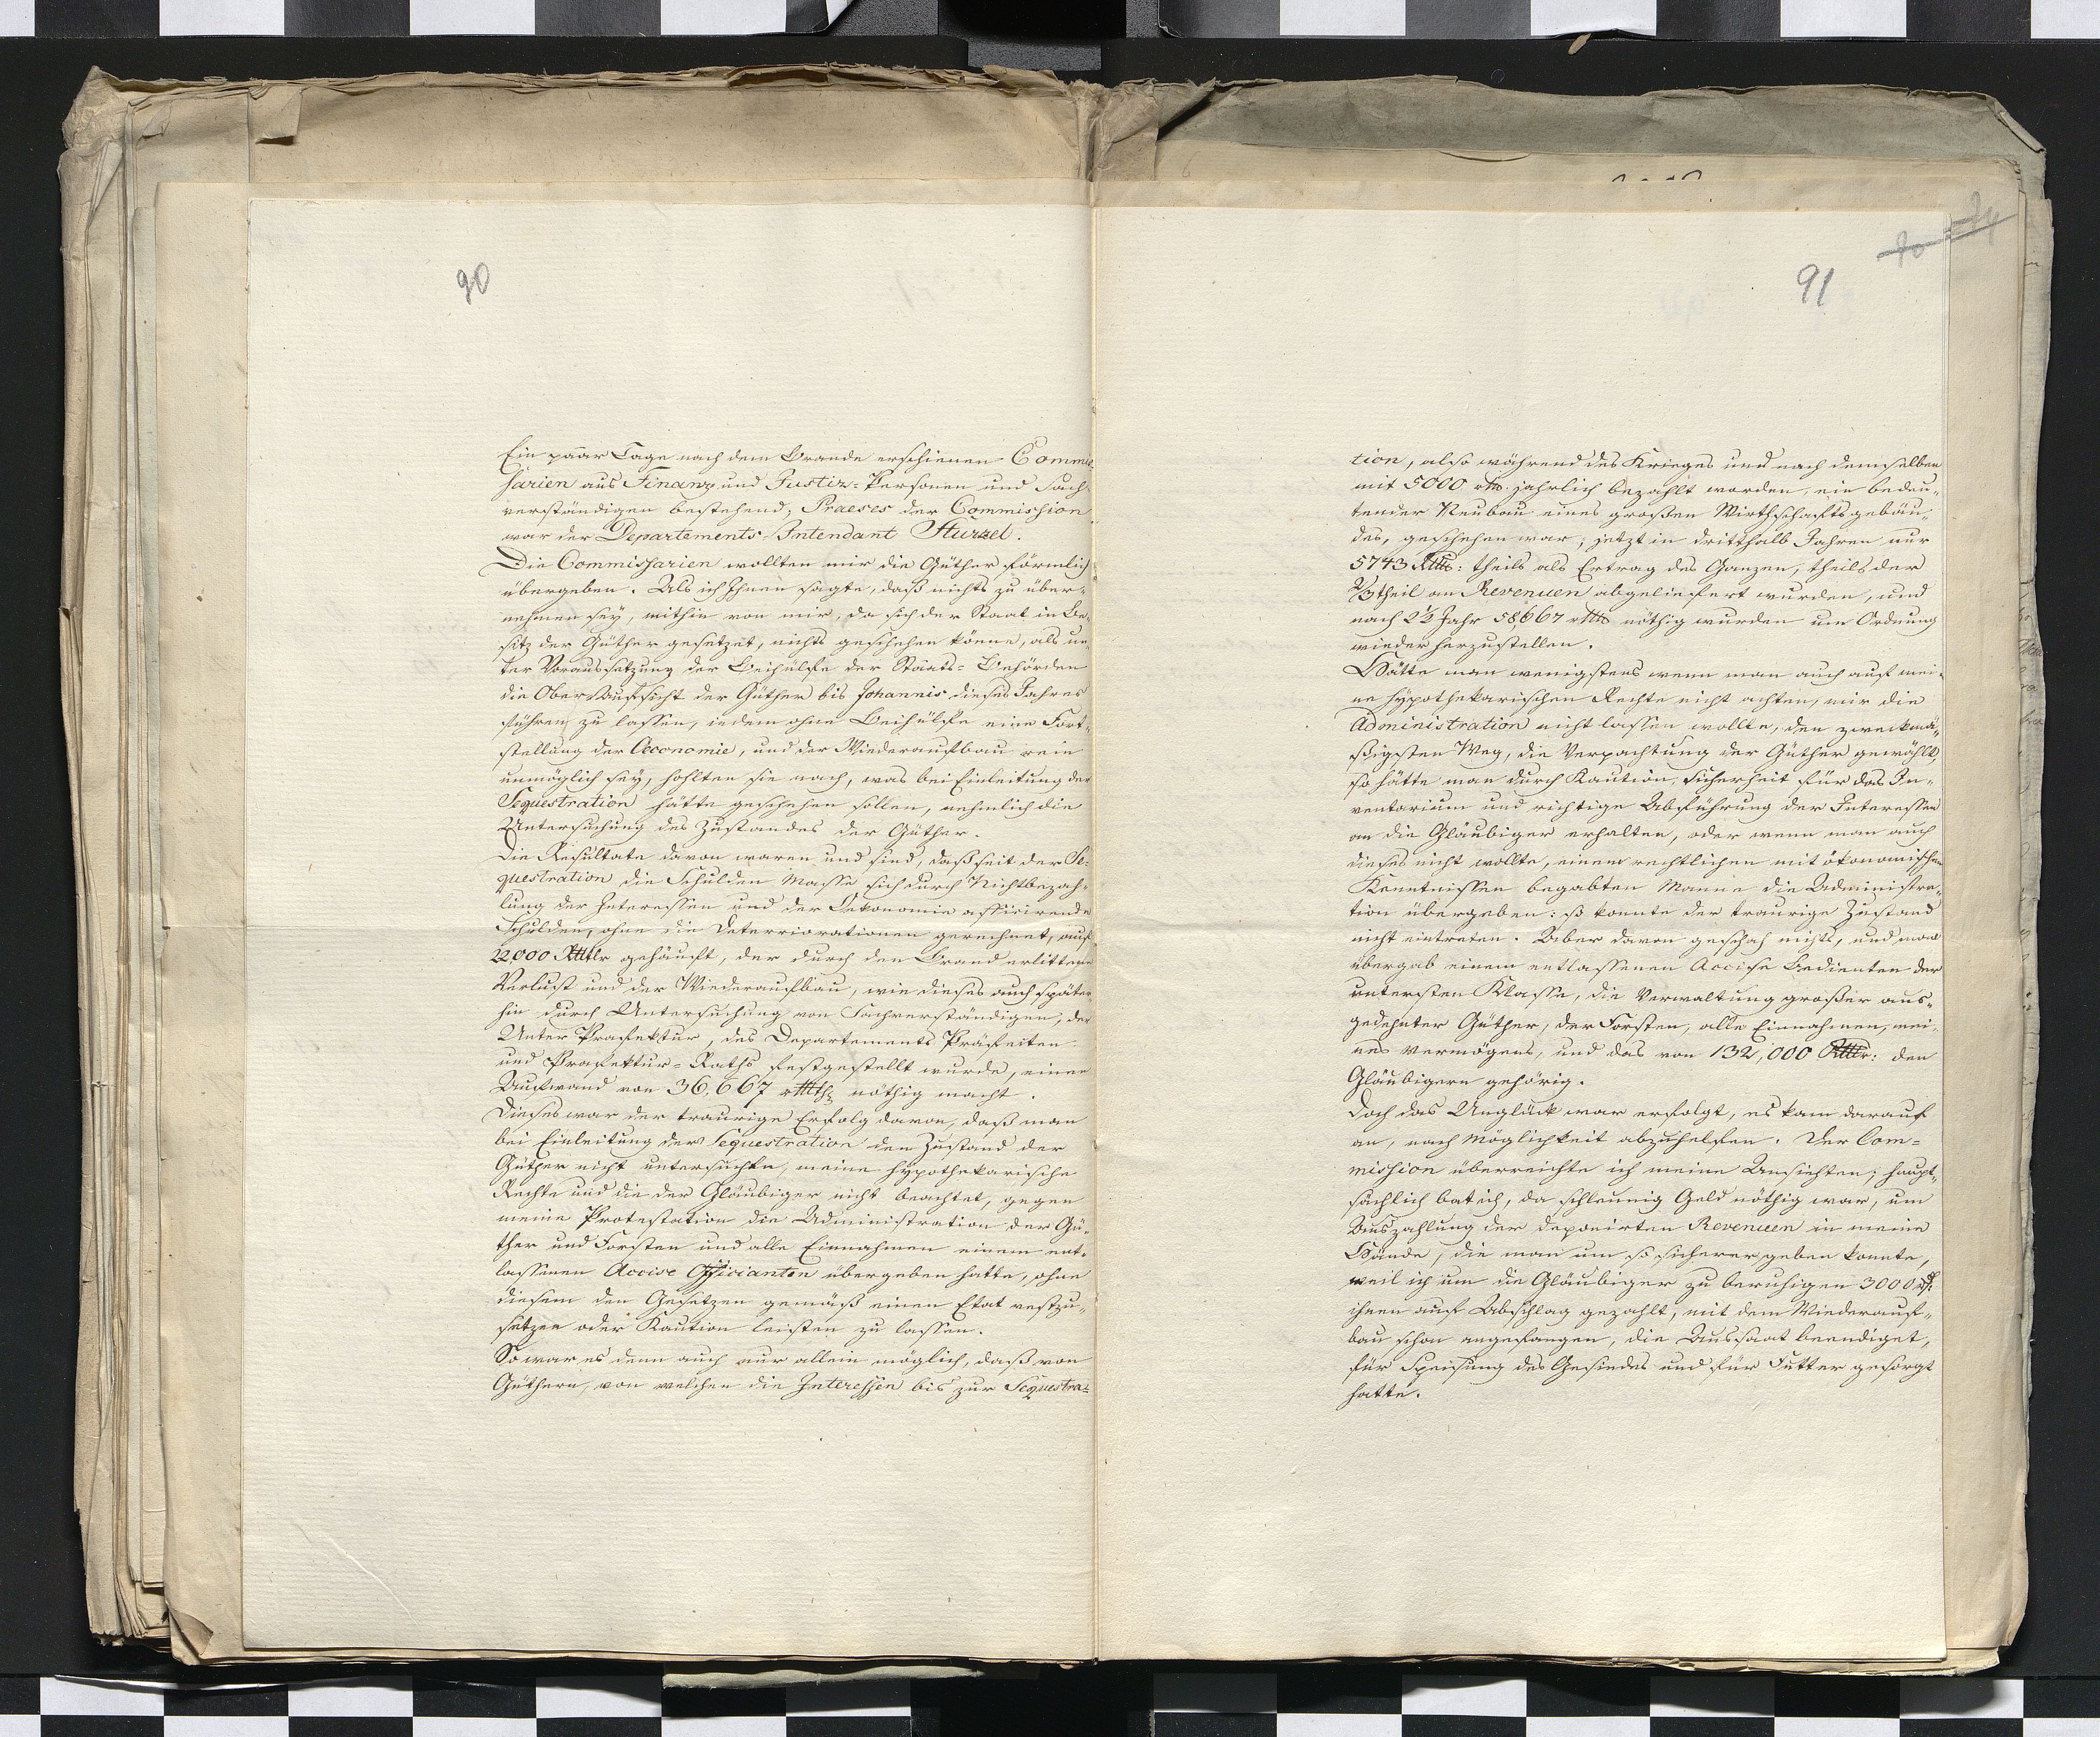 90
Ein paar Tage nach dem Brande erschienen Commis-
sarien aus Finanz und Justiz-Personen und Sach-
verständigen bestehend, Praeses der Commission
war der Departements-Intendant Sturzel.
Die Commissarien wollten mir die Güther förmlich
übergeben. Als ich Ihnen sagte, daß nichts zu über-
nehmen sey, mithin von mir, da sich der Staat in Be-
sitz der Güther gesetzet, nichts geschehen könne, als un-
ter Voraussetzung der Beihülfe der Staats-Behörden
die Ober-Aufsicht der Güther bis Johannis dieses Jahres
führen zu lassen, indem ohne Beihülfe eine Fort-
stellung der Oeconomie, und der Wiederaufbau rein
unmöglich sey, hohlten sie nach, was bei Einleitung der
Sequestration hätte geschehen sollen, nehmlich die
Untersuchung des Zustandes der Güther.
Die Resultate davon waren und sind, daß seit der Se-
questration die Schulden Masse sich durch Nichtbezah-
lung der Interessen und der Oekonomie afficirende
Schulden, ohne die Deterriorationen gerechnet, auf
22,000 Rthlr gehäuft, der durch den Brand erlittene
Verlust und der Wiederaufbau, wie dieses auch späte-
hin durch Untersuchung von Sachverständigen, der
Unter Präfektur, des Departements Präfekten
und Präfektur-Raths festgestellt wurde, einen
Aufwand von 36,667 rthlr nöthig macht.
Dieses war der traurige Erfolg davon, daß man
bei Einleitung der Sequestration den Zustand der
Güther nicht untersuchte, meine hypothekarische
Rechte und die der Gläubiger nicht beachtet, gegen
meine Protestation die Administration der Gü-
ther und Forsten und alle Einnahmen einem ent-
lassenen Accise Officianten übergeben hatte, ohne
diesem den Gesetzen gemäß einen Etat vestzu-
setzen oder Kaution leisten zu lassen.
So war es denn auch nur allein möglich, daß von
Güthern, von welchen die Interessen bis zur Sequestra-
91
tion, also während des Krieges und nach demselben
mit 5000 rth. jährlich bezahlt worden, ein bedeu-
tender Neubau eines großen Wirthschaftsgebäu-
des, geschehen war, jetzt in dritthalb Jahren nur
5743 Rthlr: theils als Ertrag des Ganzen, theils der
2/3 theil an Revenuen abgeliefert wurden, und
nach 2½ Jahr 58,667 rthlr nöthig wurden um Ordnung
wieder herzustellen.
Hätte man wenigstens wenn man auch auf mei-
ne hypothekarischen Rechte nicht achten, mir die
Administration nicht lassen wollte, den zweckmä-
ßigsten Weg, die Verpachtung der Güther gewählt,
so hätte man durch Kaution, Sicherheit für das In-
ventarium und richtige Abführung der Interessen
an die Gläubiger erhalten, oder wenn man auch
dieses nicht wollte, einem rechtlichen mit ökonomischen
Kenntnissen begabten Manne die Administra-
tion übergeben: so konnte der traurige Zustand
nicht eintreten. Aber davon geschah nichts, und man
übergab einem entlassenen Accise Bedienten der
untersten Klasse, die Verwaltung großer aus-
gedehnter Güther, der Forsten, alle Einnahmen, mei-
nes Vermögens, und das von 132,000 Rthlr: den
Gläubigern gehörig.
Doch das Unglück war erfolgt, es kam darauf
an, nach Möglichkeit abzuhelfen. Der Com-
mission überreichte ich meine Ansichten; haupt-
sächlich bat ich, da schleunig Geld nöthig war, um
Auszahlung der deponirten Revenuen in meine
Hände, die man um so sicherer geben konnte,
weil ich um die Gläubiger zu beruhigen 3000 rth
ihnen auf Abschlag gezahlt, mit dem Wiederauf-
bau schon angefangen, die Aussaat beendiget,
für Speisung des Gesindes und für Futter gesorgt
hatte.